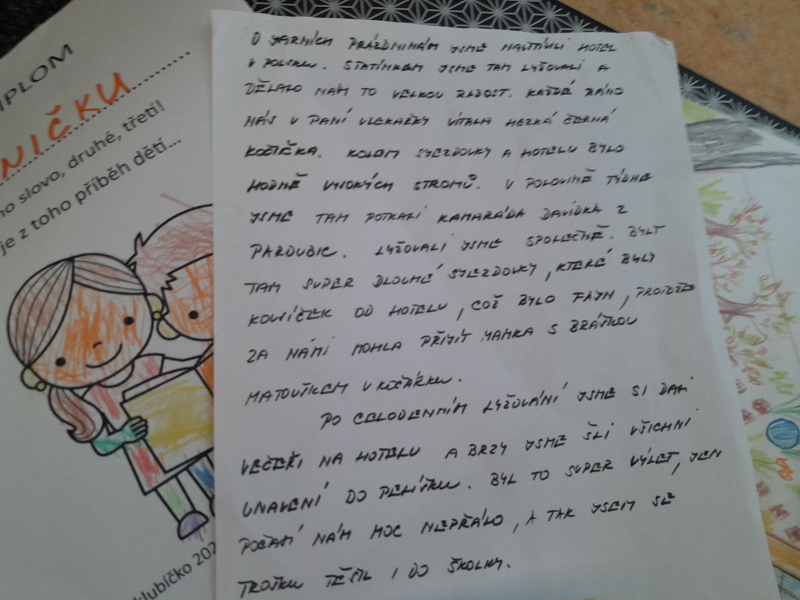 DIPLOM
NIČKU
ho slovo, druhé, třetí!
je z toho příběh dětí...
klubíčko 202
O JARNÍCH PRÁZDNINÁM JSME NAVŠTÍVILI HOTEL
V POLSKU. S TATÍNKEM JSME TAM LYŽOVALI A
DĚLALO NÁM TO VELKOU RADOST. KAŽDÉ RÁNO
NÁS U PANÍ VLEKAŘKY VÍTALA HEZKÁ ČERNÁ
KOČIČKA. KOLEM SJEZDOVKY A HOTELU BYLO
HODNĚ VYSOKÝCH STROMŮ. V POLOVINĚ TÝDNE
JSME TAM POTKALI KAMARÁDA DAVÍDKA Z
PARDUBIC. LYŽOVALI JSME SPOLEČNĚ. BYLY
TAM SUPER DLOUHÉ SJEZDOVKY, KTERÉ BYLY
KOUSÍČEK OD HOTELU, COŽ BYLO FAJN, PROTOŽE
ZA NÁMI MOHLA PŘIJÍT MAMKA S BRÁŠKOU
MATOUŠKEM V KOČÁRKU.
PO CELODENNÍM LYŽOVÁNÍ JSME SI DALI
VEČEŘI NA HOTELU A BRZY JSME ŠLI VŠICHNI
UNAVENÍ DO PELÍŠKU. BYL TO SUPER VÝLET, JEN
POČASÍ NÁM MOC NEPŘÁLO, A TAK JSEM SE
TROŠKU TĚŠIL I DO ŠKOLKY.